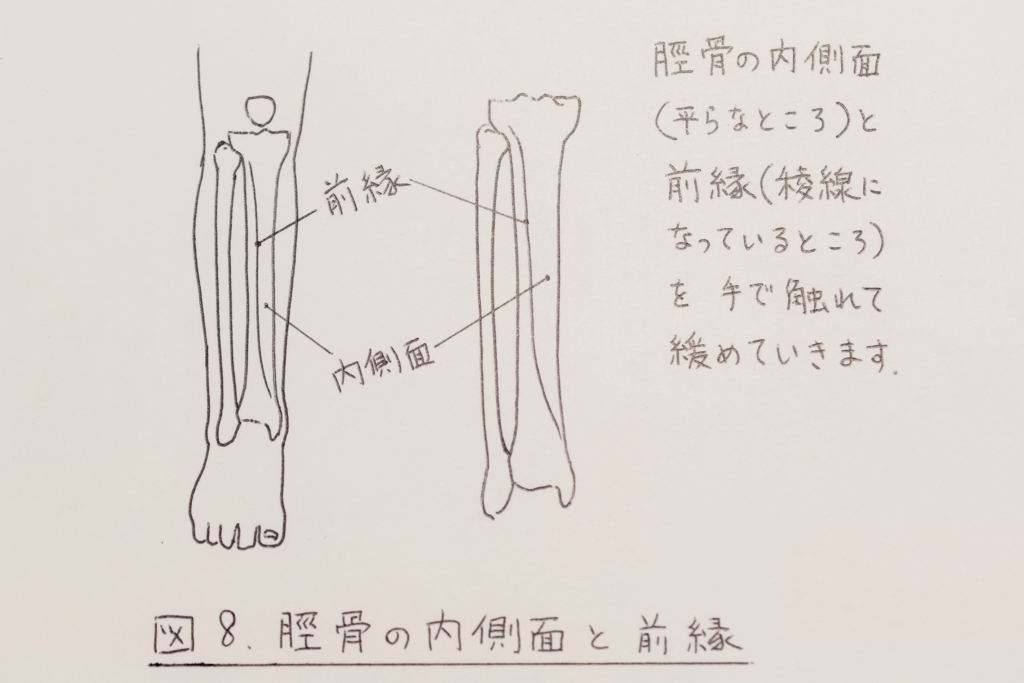 脛骨の内側面
(平らなところ)と
前縁(稜線に
なっているところ)
を 手で触れて
緩めていきます.
前縁
内側面
図8. 脛骨の内側面と前縁